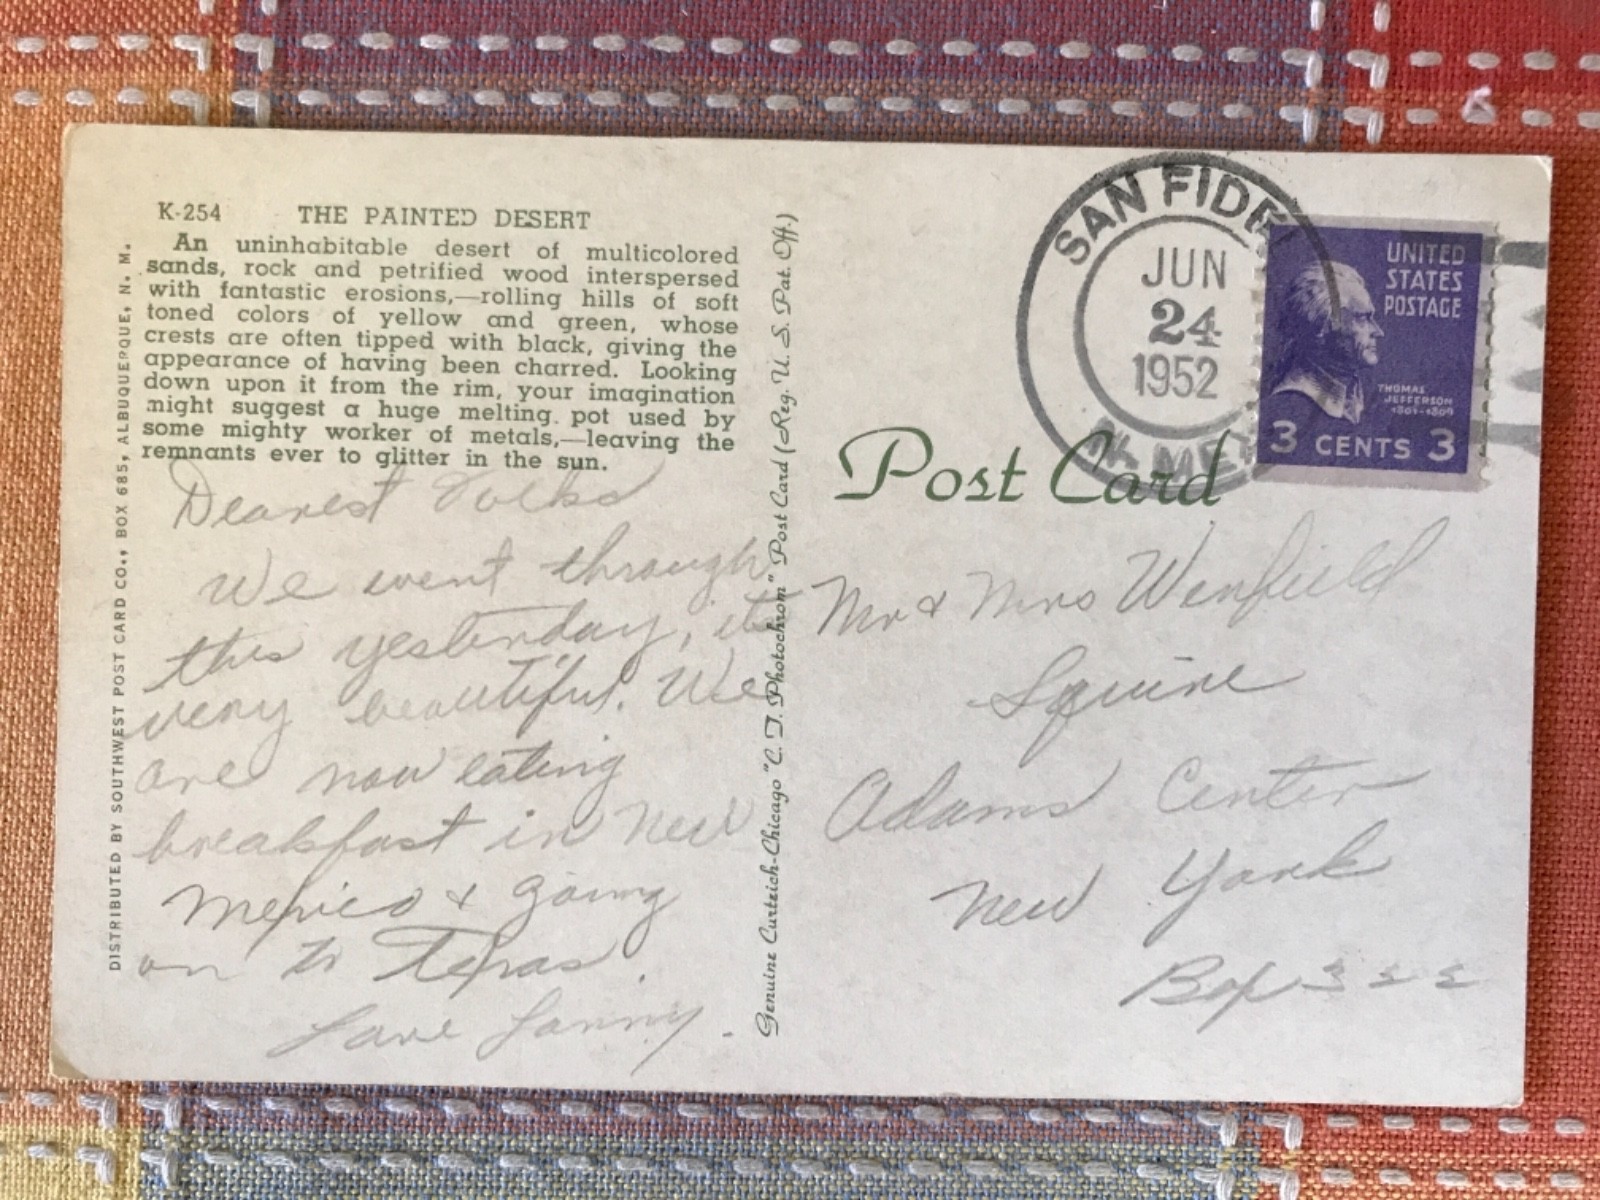 K-254 THE PAINTED DESERT
An uninhabitable desert of multicolored
sands, rock and petrified wood interspersed
with fantastic erosions,—rolling hills of soft
toned colors of yellow and green, whose
crests are often tipped with black, giving the
appearance of having been charred. Looking
down upon it from the rim, your imagination
might suggest a huge melting pot used by
some mighty worker of metals,—leaving the
remnants ever to glitter in the sun.
DISTRIBUTED BY SOUTHWEST POST CARD CO., BOX 685, ALBUQUERQUE, N. M.
Dearest Folks
We went through
this yesterday, its
very beautiful. We
are now eating
breakfast in New
Mexico & going
on to Texas.
Love Lanny.
Genuine Curteich-Chicago "C. T. Photochrom" Post Card (Reg. U. S. Pat. Off.)
SAN FIDE
JUN
24
1952
N. MEX
UNITED
STATES
POSTAGE
THOMAS
JEFFERSON
1801-1809
3 CENTS 3
Post Card
Mr & Mrs Winfield
Squire
Adams Center
New York
Box 322